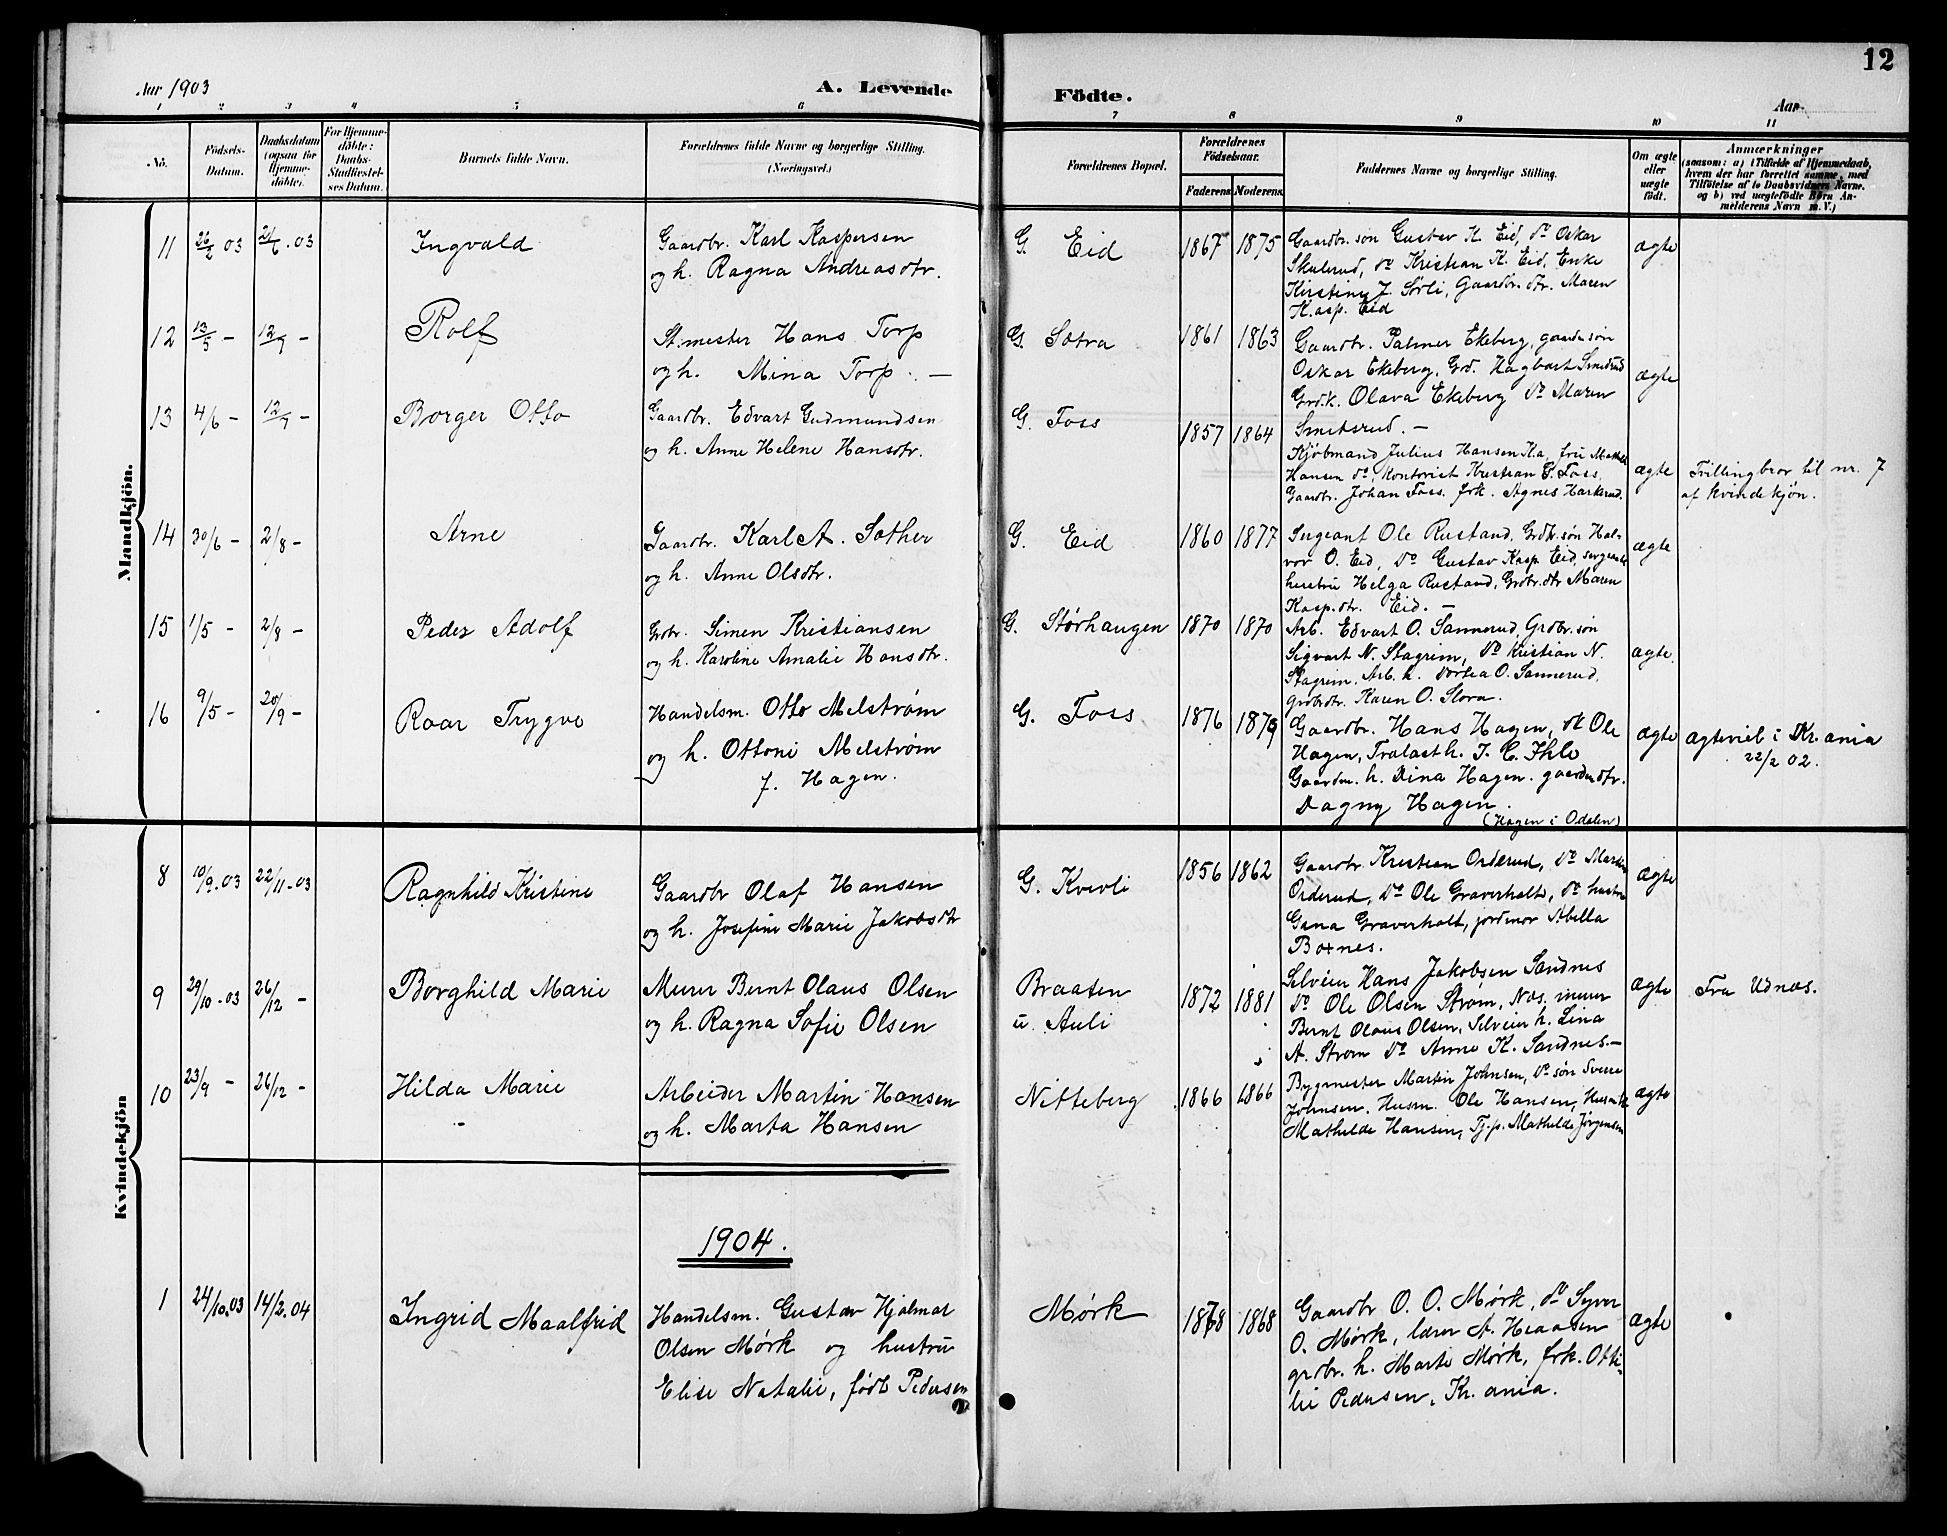 12
Aar 1903
A. Levende
Födte.
Aar
1 2 3 4 5 6 7 8 9 10 11
No.
Födsels-
Datum.
Daabsdatum
(ogsaa for
Hjemme-
döbte).
For Hjemme-
döbte:
Daabs-
Stadfæstel-
ses Datum.
Barnets fulde Navn.
Forældrenes fulde Navne og borgerlige Stilling.
(Næringsvei.)
Forældrenes Bopæl.
Forældrenes
Födselsaar.
Faderens Moderens
Faddernes Navne og borgerlige Stilling.
Om ægte
eller
uægte
födt.
Anmærkninger
(saasom: a) i Tilfælde af Hjemmedaab,
hvem der har forrettet samme, med
Tilföielse af to Daabsvidners Navne.
og b) ved uægtefödte Börn An-
melderens Navn m. V.)
Mandkjön.
11 26/2 03 21/6 . 03 Ingvald
Gaardbr. Karl Kaspersen
og h. Ragna Andreasdtr.
G. Eid 1867 1875
Gaardbr. søn Gustav K. Eid, do Oskar
Skulerud, do Kristian K. Eid, Enke
Kirstine J. Sørli, Gaardbr. dtr. Maren
Kasp. Eid
ægte
12 13/5 - 12/7 - Rolf
St.mester Hans Torp
og h. Mina Torp. -
G. Sætra 1861 1863
Gaardbr. Palmer Ekeberg, gaardm søn
Oskar Ekeberg, Grd. Hagbart Smedsrud
Grdk. Olava Ekeberg do Maren
Smedsrud. -
ægte
13 4/6 - 12/7 - Borger Otto
Gaardbr. Edvart Gudmundsen
og h. Anne Helene Hansdtr.
G. Foss 1857 1864
Kjøbmand Julius Hansen Ka, frue
Hansen do, Kontorist Kristian E. Foss,
Gaardbr. Johan Foss. frk. Agnes Harkerud.
ægte
Tvillingbror til nr. 7
af kvindekjøn.
14 30/6 - 2/8 - Arne
Gaardbr. Karl A. Sother
og h. Anne Olsdtr.
G. Eid 1860 1877
Sergeant Ole Rustand, Grdbr. søn Hal-
vor O. Eid, do Gustav Kasp. Eid, sergeants
hustru Helga Rustand, Grdbr. dtr Maren
Kasp. dtr. Eid. -
ægte
15 1/5 - 2/8 - Peder Adolf
Grdbr. Simen Kristiansen
og h. Karoline Amalie Hansdtr.
G. Størhaugen 1870 1870
Arb. Edvart O. Sannerud, Grdbr. søn
Sigvart N. Stagrim, do Kristian N.
Stagrim, Arb. h. Dortea O. Sannerud,
grdbrdtr. Karen O. Slora.
ægte.
16 9/5 - 20/9 - Roar Trygve
Handelsm. Otto Melstrøm
og h. Ottoni Melstrøm
f. Hagen.
G. Foss 1876 1879
Gaardbr. Hans Hagen, do Ole
Hagen, Tralasth. J. C. Ihle
Gaardm. h. Dina Hagen. gaardmdtr.
Dagny Hagen.
(Hagen i Odalen)
ægte
ægteviet i Kr.ania
22/2 02.
Kvindekjön
8 10/9 . 03 22/11 - 03 Ragnhild Kristine
Gaardbr Olaf Hansen
og h. Josefine Marie Jakobsdtr
G. Kvevli 1856 1862
Gaardbr Kristian Orderud, do Martin
Orderud, do Ole Graverholt, do hustru
Gena Graverholt, jordmor Abella
Botnes.
ægte
9 29/10 - 03 26/12 - Borghild Marie
Murer Bernt Olaus Olsen
og h. Ragna Sofie Olsen
Braaten
u. Auli
1872 1881
Selveier Hans Jakobsen Sandnes
do Ole Olsen Strøm, Næs, murer
Bernt Olaus Olsen, Selveier h. Lina
A. Strøm do Anne K. Sandnes. -
ægte
Fra Udnæs.
10 23/9 - 26/12 - Hilda Marie
Arbeider Martin Hansen
og h. Marta Hansen
Nitteberg 1866 1866
Bygmester Martin Johnsen, do søn Sverre
Johnsen, Husm. Ole Hansen,
Mathilde Hansen, Tj.p. Mathilde Jørgensen
ægte
1904.
1 24/10.03 14/2.04 Ingrid Maalfrid
Handelsm. Gustav Hjalmar
Olsen Mørk og hustru
Elise Natalie, født Pedersen
Mørk 1878 1868
Gaardbr O. O. Mørk, do Syver
O. Mørk, lærer A. Haasen
grdbr. h. Marte Mørk, frk. Otti-
lie Pedersen, Kr. ania.
ægte